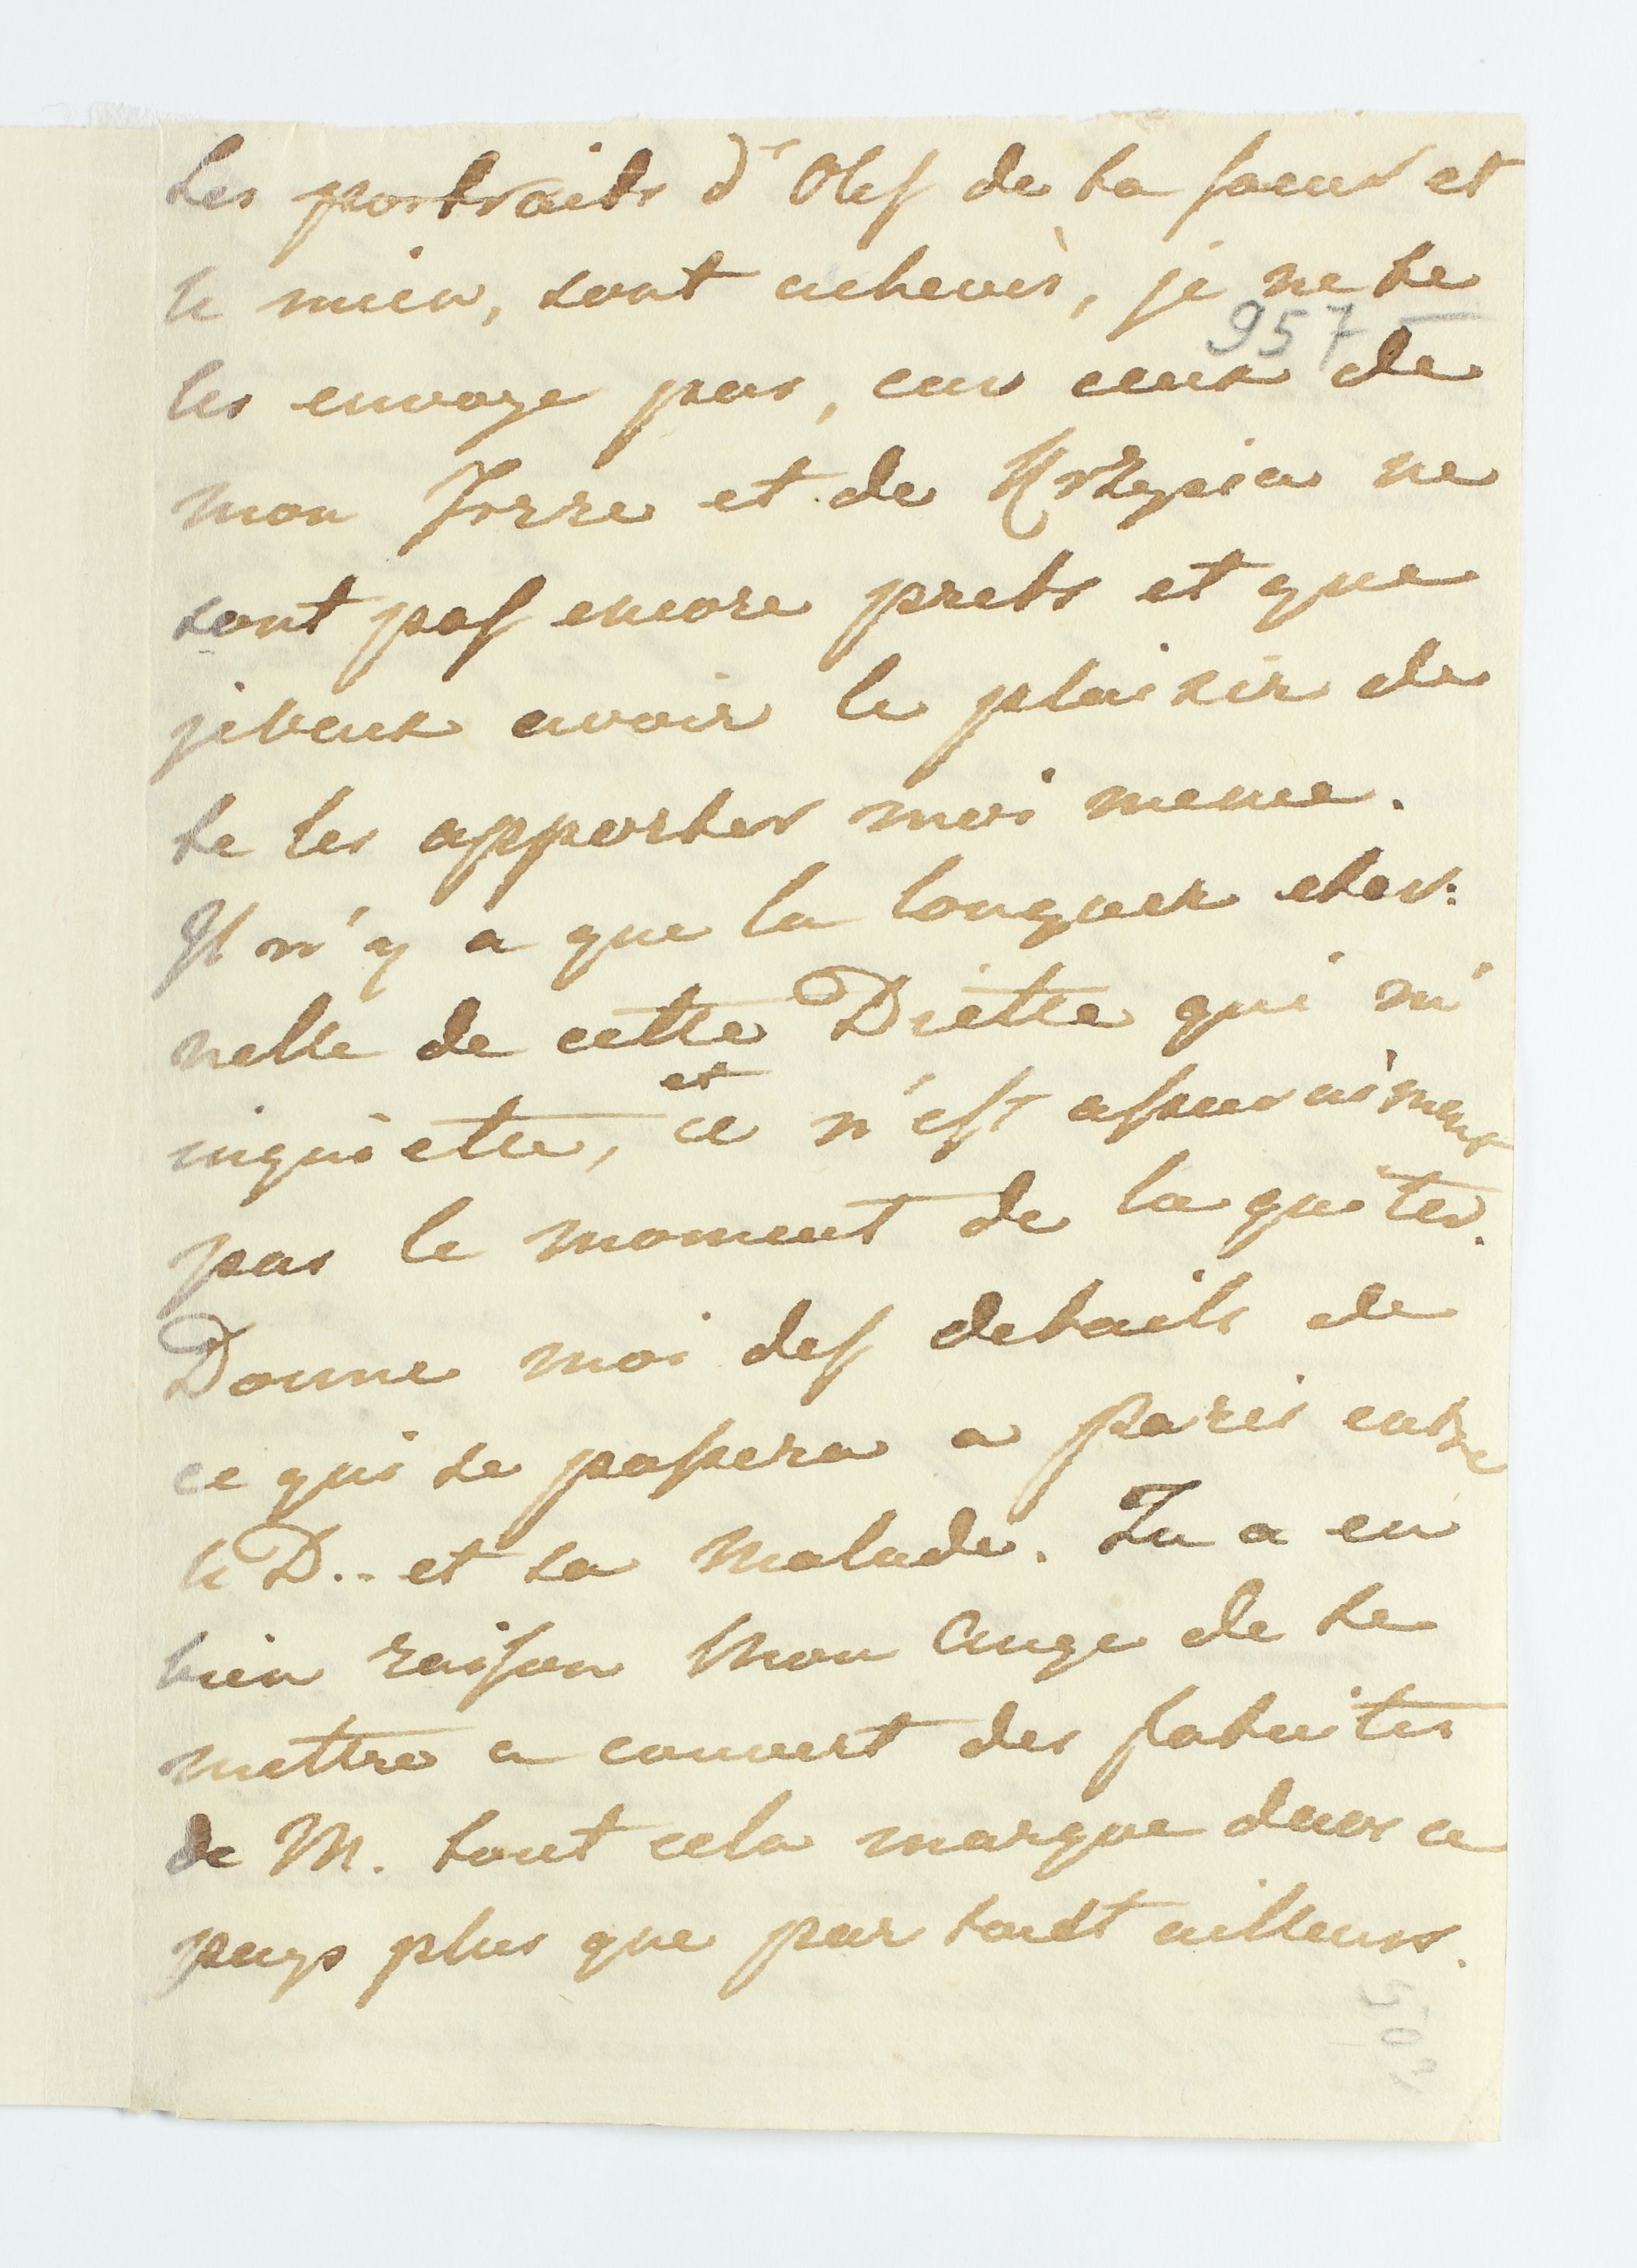 Les portraits d'Oles de ta soeur et
le mien, sont achevès, je ne te
957
les envoye pas, car ceux de
mon Jorre et de Krzysia ne
sont pas encore prets et que
je veux avoir le plaisir de
te les apporter moi meme.
Il n'y a que la longueur eter:
nelle de cette Diette qui m'
inquiette, et ce n'est assuraiment
pas le moment de la quiter.
Donne moi des details de
ce qui se passera a paris entre
le D.. et sa Malade. Tu a eu
bien raison Mon Ange de te
mettre a couvert des fatuites
de M. tout cela marque dans ce
pays plus que par tout ailleurs.